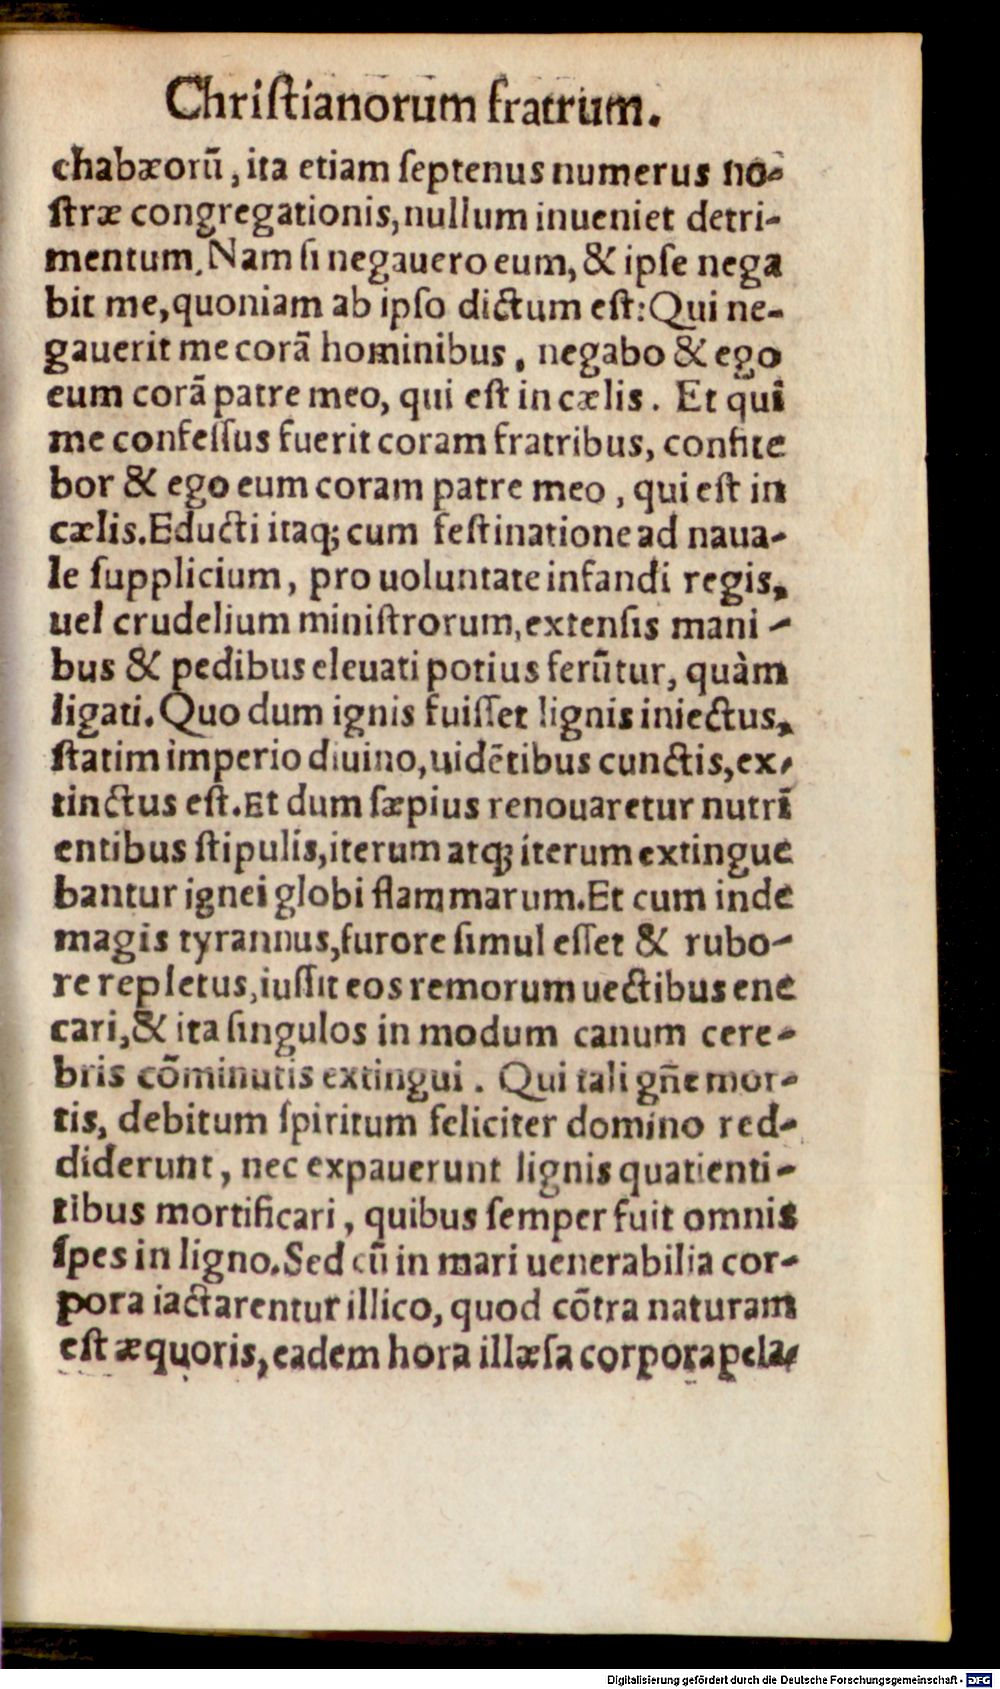 Chriſtianorum fratrum.
chabæorũ, ita etiam ſeptenus numerus no-
ſtræ congregationis, nullum inueniet detri-
mentum. Nam ſi negauero eum, & ipſe nega
bit me, quoniam ab ipſo dictum eſt: Qui ne-
gauerit me corã hominibus, negabo & ego
eum corã patre meo, qui eſt in cælis. Et qui
me confeſſus fuerit coram fratribus, confite
bor & ego eum coram patre meo, qui eſt in
cælis. Educti itaq; cum feſtinatione ad naua-
le ſupplicium, pro uoluntate infandi regis,
uel crudelium miniſtrorum, extenſis mani-
bus & pedibus eleuati potius ferũtur, quàm
ligati. Quo dum ignis fuiſſet lignis iniectus,
ſtatim imperio diuino, uidẽtibus cunctis, ex-
tinctus eſt. Et dum ſæpius renouaretur nutri
entibus ſtipulis, iterum atq; iterum extingue
bantur ignei globi flammarum. Et cum inde
magis tyrannus, furore ſimul eſſet & rubo-
re repletus, iuſſit eos remorum uectibus ene
cari, & ita ſingulos in modum canum cere-
bris cõminutis extingui. Qui tali gñe mor-
tis, debitum ſpiritum feliciter domino red-
diderunt, nec expauerunt lignis quatienti-
tibus mortificari, quibus ſemper fuit omnis
ſpes in ligno. Sed cũ in mari uenerabilia cor-
pora iactarentur illico, quod cõtra naturam
eſt æquoris, eadem hora illæſa corpora pela-
Digitalisierung gefördert durch die Deutsche Forschungsgemeinschaft - DFG